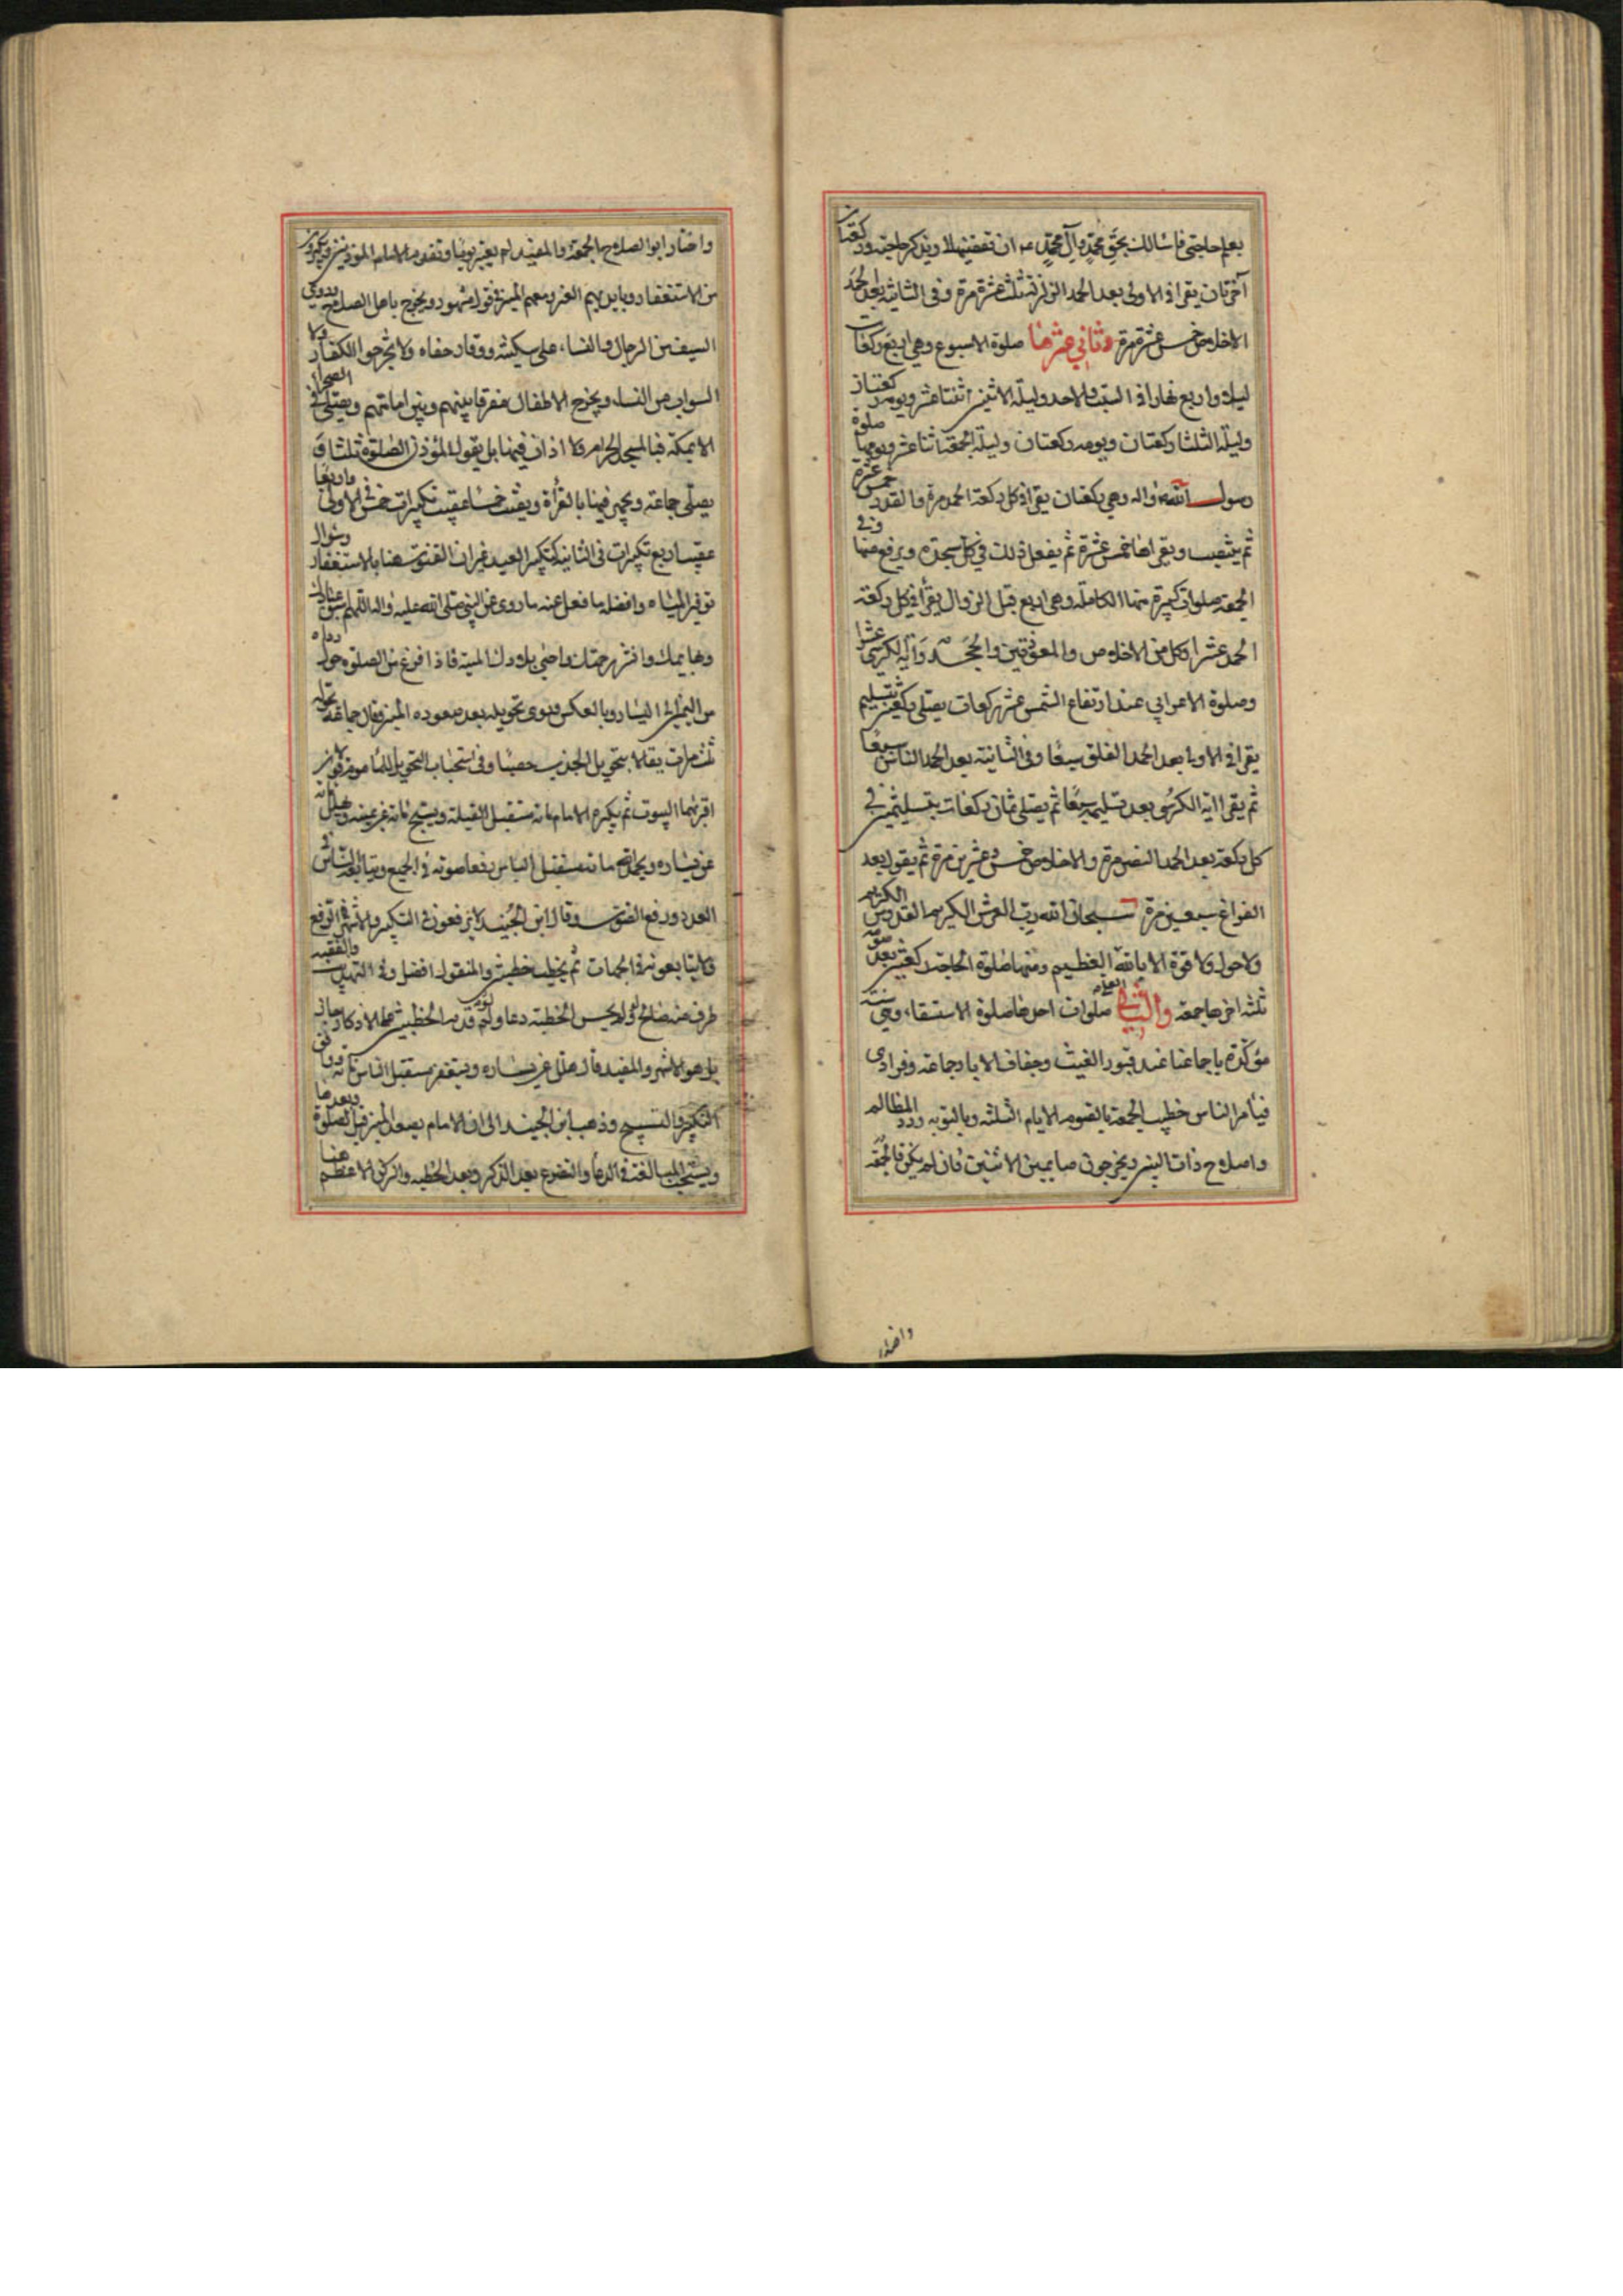 بعلم حاجتي فاسالك بحق محمد وآل محمد ان تقضيها لا ويذكر حاجته وركعتان
آخرتان يقرا في الاولى بعد الحمد الزلزلة ثلث عشرة مرة وفي الثانية بعد الحمد
الاخلاص خمس عشرة مرة وثاني عشرها صلوة الاسبوع وهي اربع ركعات
ليلا واربع نهارا في السبت والاحد وليلة الاثنين اثنتا عشر ويومه ركعتان
وليلة الثلثا ركعتان ويومه ركعتان وليلة الجمعة اثنا عشر ويومها صلوة
رسول الله واله وهي ركعتان يقرا في كل ركعة الحمد مرة والقدر خمس عشرة
ثم ينتصب ويقراها خمس عشرة ثم يفعل ذلك في كل سجدة ويرفع منها وفي
الجمعة صلوات كثيرة منها الكاملة وهي اربع قبل الزوال يقرأ في كل ركعة
الحمد عشرا وكل من الاخلاص والمعوذتين والجحد وآية الكرسي عشرا
وصلوة الاعرابي عند ارتفاع الشمس عشر ركعات يصلى ركعتين بتسليم
يقرا في الاولى بعد الحمد الفلق سبعا وفي الثانية بعد الحمد الناس سبعا
ثم يقرا اية الكرسي بعد تسليمه سبعا ثم يصلى ثمان ركعات بتسليمتين في
كل ركعة بعد الحمد النصر مرة والاخلاص خمس وعشرين مرة ثم يقول بعد
الفراغ سبعين مرة سبحان الله رب العرش الكريم
ولا حول ولا قوة الا بالله العظيم ومنها صلوة الحاجة ركعتين بعد صوم
ثلثة اخرها جمعة والثاني صلوات احدها صلوة الاستسقاء وهي سنة
مؤكدة باجماعنا عند فتور الغيث وجفاف الابار جماعة وفرادى
فيأمر الناس خطيب الجمعة بالصوم الايام الثلثة وبالتوبة ورد المظالم
واصلاح ذات البين ويخرجون صايمين الاثنين فان لم يكن فالجمعة
واختار
واختار ابو الصلاح الجمعة والمفيد لم يعين يوما وتقدم الامام المؤذنين ويكثرون
من الاستغفار وبايديهم العنز ومعهم المنبر في قول مشهور ويخرج باهل الصلاح
السيف من الرجال والنساء على سكينة ووقار حفاه ولا يخرجوا الكفار ولا
الشواب من النساء ويخرج الاطفال مفرقا بينهم وبين امهاتهم ويصلى في الصحراء
الا بمكة فبالمسجد الحرام ولا اذان فيها بل يقول المؤذن الصلوة ثلثا و
يصلى جماعة ويجهر فيها بالقرأة ويقنت خمسا عقيب تكبيرات خمس في الاولى واربعا
عقيب اربع تكبيرات في الثانية كتكبير العيد غير ان القنوت هنا بالاستغفار وسؤال
توفير المياه وافضله ما فعل عنه ما روى عن النبي صلى الله عليه واله اللهم اسق عبادك
وبهايمك وانشر رحمتك واحيى بلادك الميتة فاذا فرغ من الصلوة حول رداه
من اليمين الى اليسار وبالعكس وروى تحويله بعد صعوده المنبر وقال جماعة
ثلث مرات
ثم يكبر الامام مائة مستقبل القبلة ويسبح مائة عن يمينه ويهلل مائة
عن يساره ويحمد الله مائة مستقبل الناس رافعا صوته في الجميع ويتابعه الناس في
العدد ورفع الصوت وقال ابن الجنيد لا يرفعون في التكبير
ولا يتابعونه في الجهات ثم يخطب خطبتين والمنقول افضل
بل هو الاشهر
التكبير والتسبيح وذهب ابن الجنيد الى ان الامام يصعد المنبر قبل الصلوة وبعدها
ويستحب المبالغة في الدعا والتضرع بعد الذكر وبعد الخطبة والركن الاعظم هنا